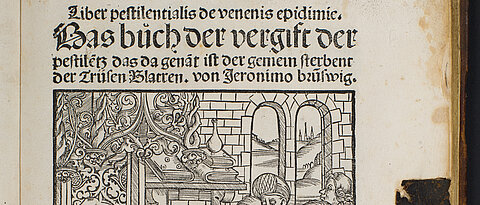 Liber pestilentialis de venenis epidimie.
Das bůch der vergift der
pestilẽtz das da genãt ist der gemein sterbent
der Trüsen Blatren. von Jeronimo brüswig.